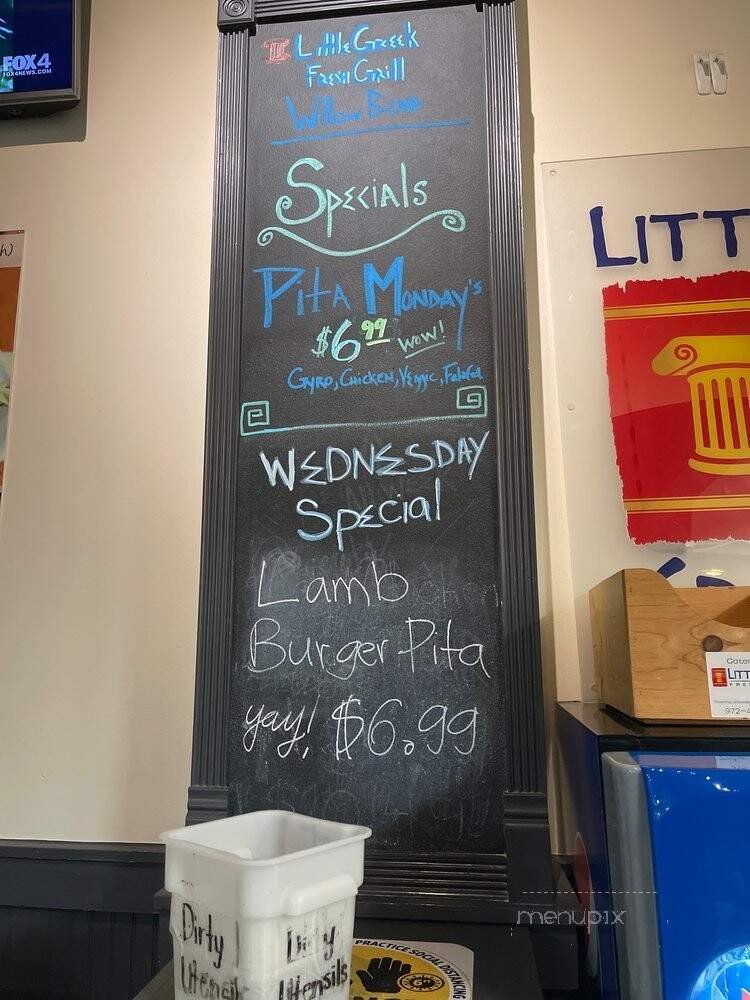 FOX 4
FOX4NEWS.COM
h)
Little Greek
Fresh Grill
Willow Bend
Specials
Pita Monday's
$6.99 WOW!
Gyro, Chicken, Veggie, Falafel
WEDNESDAY
Special
Lamb
Burger Pita
yay! $6.99
LITT
Cater
LITT
972-4
menupix
Dirty Dirty
Utensils Utensils
PRACTICE SOCIAL DISTANCING